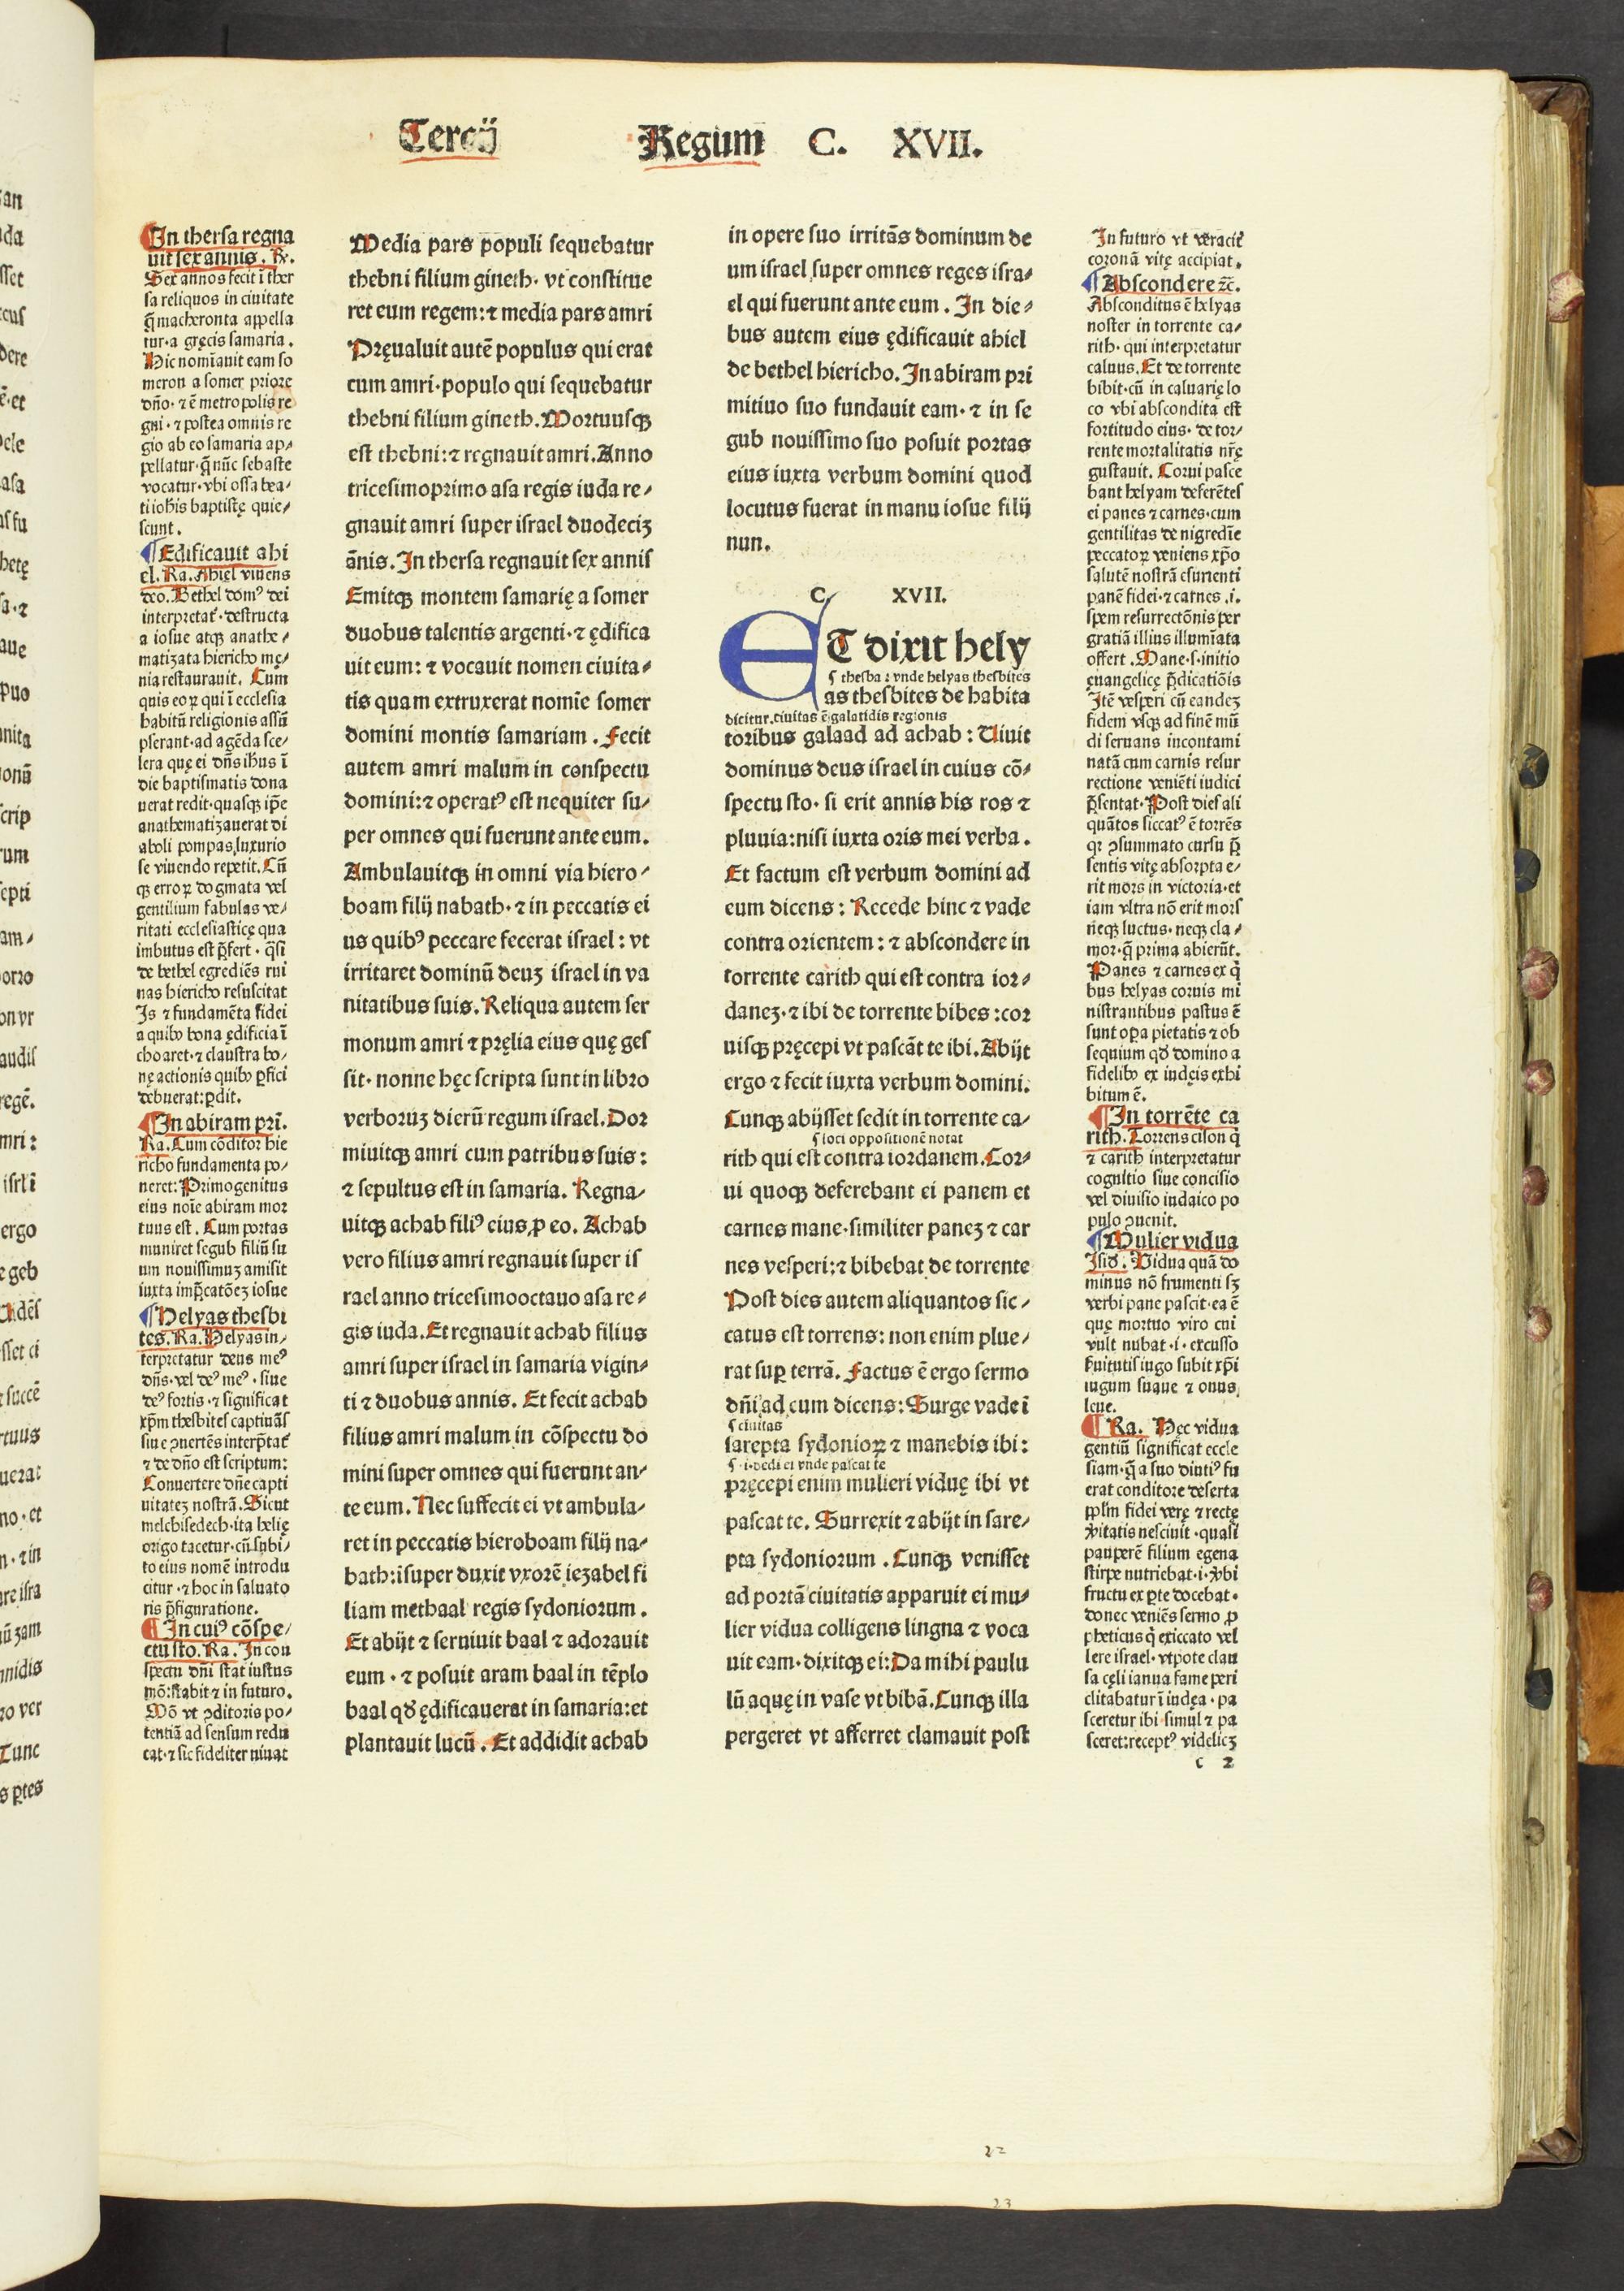 Tercij Regum C. XVII.
¶In thersa regna
uit sex annis. Ra.
Sex annos fecit ī ther
sa reliquos in ciuitate
q̄ macheronta appella
tur·a gręcis samaria.
Hic nomīauit eam so
meron a somer priore
dn̄o·⁊ ē metropolis re
gni·⁊ postea omnis re
gio ab eo samaria ap⸗
pellatur·q̄ nūc sebaste
vocatur·vbi ossa bea⸗
ti ioh̄is baptistę quie⸗
scunt.
¶Edificauit ahi
el. Ra. Ahiel viuens
deo. Bethel domꝰ dei
interpretat᷑·destructa
a iosue atqꝫ anathe⸗
matizata hiericho mę⸗
nia restaurauit. Cum
quis eoꝝ qui ī ecclesia
habitū religionis assū
pserant·ad agēda sce⸗
lera quę ei dn̄s ih̄us ī
die baptismatis dona
uerat redit·quasqꝫ ip̄e
anathematizauerat di
aboli pompas,luxurio
se viuendo repetit. Cū
qꝫ erroꝝ dogmata vel
gentilium fabulas ve⸗
ritati ecclesiasticę qua
imbutus est p̄fert·q̄si
de bethel egrediēs rui
nas hiericho resuscitat
Is ⁊ fundamēta fidei
a quibꝰ bona ędificia ī
choaret·⁊ claustra bo⸗
nę actionis quibꝰ ꝑfici
debuerat:ꝑdit.
¶In abiram pri.
Ra. Cum cōditor hie
richo fundamenta po⸗
neret: Primogenitus
eius noīe abiram mor
tuus est. Cum portas
muniret segub filiū su
um nouissimuꝫ amisit
iuxta imp̄catōeꝫ iosue
¶Helyas thesbi
tes. Ra. Helyas in⸗
terpretatur deus meꝰ
dn̄s·vel deꝰ meꝰ·siue
deꝰ fortis·⁊ significat
xp̄m thesbites captiuās
siue ꝯuertēs interp̄tat᷑
⁊ de dn̄o est scriptum:
Conuertere dn̄e capti
uitateꝫ nostrā. Sicut
melchisedech·ita helię
origo tacetur·cū subi⸗
to eius nomē introdu
citur·⁊ hoc in saluato
ris p̄figuratione.
¶In cuiꝰ cōspe⸗
ctu sto. Ra. In con
spectu dn̄i stat iustus
mō:stabit ⁊ in futuro.
Mō vt ꝯditoris po⸗
tentiā ad sensum redu
cat·⁊ sic fideliter uiuat
Media pars populi sequebatur
thebni filium gineth· vt constitue
ret eum regem:⁊ media pars amri
Pręualuit autē populus qui erat
cum amri·populo qui sequebatur
thebni filium gineth. Mortuusqꝫ
est thebni:⁊ regnauit amri. Anno
tricesimoprimo asa regis iuda re⸗
gnauit amri super israel duodeciꝫ
ānis. In thersa regnauit sex annis
Emitqꝫ montem samarię a somer
duobus talentis argenti·⁊ ędifica
uit eum: ⁊ vocauit nomen ciuita⸗
tis quam extruxerat nomīe somer
domini montis samariam. Fecit
autem amri malum in conspectu
domini:⁊ operatꝰ est nequiter su⸗
per omnes qui fuerunt ante eum.
Ambulauitqꝫ in omni via hiero⸗
boam filij nabath·⁊ in peccatis ei
us quibꝰ peccare fecerat israel: vt
irritaret dominū deuꝫ israel in va
nitatibus suis. Reliqua autem ser
monum amri ⁊ pręlia eius quę ges
sit· nonne hęc scripta sunt in libro
verboruꝫ dierū regum israel. Dor
miuitqꝫ amri cum patribus suis:
⁊ sepultus est in samaria. Regna⸗
uitqꝫ achab filiꝰ eius ꝓ eo. Achab
vero filius amri regnauit super is
rael anno tricesimooctauo asa re⸗
gis iuda. Et regnauit achab filius
amri super israel in samaria vigin⸗
ti ⁊ duobus annis. Et fecit achab
filius amri malum in cōspectu do
mini super omnes qui fuerunt an⸗
te eum. Nec suffecit ei vt ambula⸗
ret in peccatis hieroboam filij na⸗
bath:īsuper duxit vxorē iezabel fi
liam methaal regis sydoniorum.
Et abijt ⁊ seruiuit baal ⁊ adorauit
eum·⁊ posuit aram baal in tēplo
baal qd̄ ędificauerat in samaria:et
plantauit lucū. Et addidit achab
in opere suo irritās dominum de
um israel super omnes reges isra⸗
el qui fuerunt ante eum. In die⸗
bus autem eius ędificauit ahiel
de bethel hiericho. In abiram pri
mitiuo suo fundauit eam·⁊ in se
gub nouissimo suo posuit portas
eius iuxta verbum domini quod
locutus fuerat in manu iosue filij
nun.
C. XVII.
ET dixit hely
¶ thesba : vnde helyas thesbites
as thesbites de habita
dicitur.ciuitas ē galatidis regionis
toribus galaad ad achab: Uiuit
dominus deus israel in cuius cō⸗
spectu sto· si erit annis his ros ⁊
pluuia:nisi iuxta oris mei verba.
Et factum est verbum domini ad
eum dicens: Recede hinc ⁊ vade
contra orientem: ⁊ abscondere in
torrente carith qui est contra ior⸗
daneꝫ·⁊ ibi de torrente bibes:cor
uisqꝫ pręcepi vt pascāt te ibi. Abijt
ergo ⁊ fecit iuxta verbum domini.
Cunqꝫ abijsset sedit in torrente ca⸗
¶ loci oppositionē notat
rith qui est contra iordanem. Cor⸗
ui quoqꝫ deferebant ei panem et
carnes mane·similiter paneꝫ ⁊ car
nes vesperi:⁊ bibebat de torrente
Post dies autem aliquantos sic⸗
catus est torrens: non enim plue⸗
rat suꝑ terrā. Factus ē ergo sermo
dn̄i ad eum dicens: Surge vade ī
¶ ciuitas
sarepta sydonioꝝ ⁊ manebis ibi:
¶·i·dedi ei vnde pascat te
pręcepi enim mulieri viduę ibi vt
pascat te. Surrexit ⁊ abijt in sare⸗
pta sydoniorum. Cunqꝫ venisset
ad portā ciuitatis apparuit ei mu⸗
lier vidua colligens lingna ⁊ voca
uit eam·dixitqꝫ ei: Da mihi paulu
lū aquę in vase vt bibā. Cunqꝫ illa
pergeret vt afferret clamauit post
In futuro vt veracit᷑
coronā vitę accipiat.
¶Abscondere ⁊c̄.
Absconditus ē helyas
noster in torrente ca⸗
rith· qui interpretatur
caluus. Et de torrente
bibit·cū in caluarię lo
co vbi abscondita est
fortitudo eius· de tor⸗
rente mortalitatis nr̄ę
gustauit. Corui pasce
bant helyam deferētes
ei panes ⁊ carnes·cum
gentilitas de nigredīe
peccatoꝝ veniens xp̄o
salutē nostrā esurienti
panē fidei·⁊ carnes .i.
spem resurrectōnis per
gratiā illius illumīata
offert. Mane·s·initio
ęuangelicę p̄dicatiōis
Itē vesperi cū eandeꝫ
fidem vsqꝫ ad finē mū
di seruans incontami
natā cum carnis resur
rectione veniēti iudici
p̄sentat. Post dies ali
quātos siccatꝰ ē torrēs
qꝛ ꝯsummato cursu p̄
sentis vitę absorpta e⸗
rit mors in victoria·et
iam vltra nō erit mors
neqꝫ luctus· neqꝫ cla⸗
mor·q̄ prima abierūt.
Panes ⁊ carnes ex q̄
bus helyas coruis mi
nistrantibus pastus ē
sunt oꝑa pietatis ⁊ ob
sequium qd̄ domino a
fidelibꝰ ex iudęis exhi
bitum ē.
¶In torrēte ca
rith. Torrens cison q̄
⁊ carith interpretatur
cognitio siue concisio
vel diuisio iudaico po
pulo ꝯuenit.
¶Mulier vidua
Isid̄. Vidua quā do
minus nō frumenti sꝫ
verbi pane pascit·ea ē
quę mortuo viro cui
vult nubat·i·excusso
ẜuitutis iugo subit xp̄i
iugum suaue ⁊ onus
leue.
¶Ra. Hęc vidua
gentiū significat eccle
siam·q̄ a suo diutiꝰ fu
erat conditore deserta
pp̄lm fidei verę ⁊ rectę
v̄itatis nesciuit·quasi
pauperē filium egena
stirpe nutriebat·i·v̄bi
fructu ex ꝑte docebat·
donec veniēs sermo ꝓ
pheticus q̄ exiccato vel
lere israel·vtpote clau
sa cęli ianua fame peri
clitabatur ī iudęa·pa
sceretur ibi·simul ⁊ pa
sceret:receptꝰ videliceꝫ
c 2
22
23